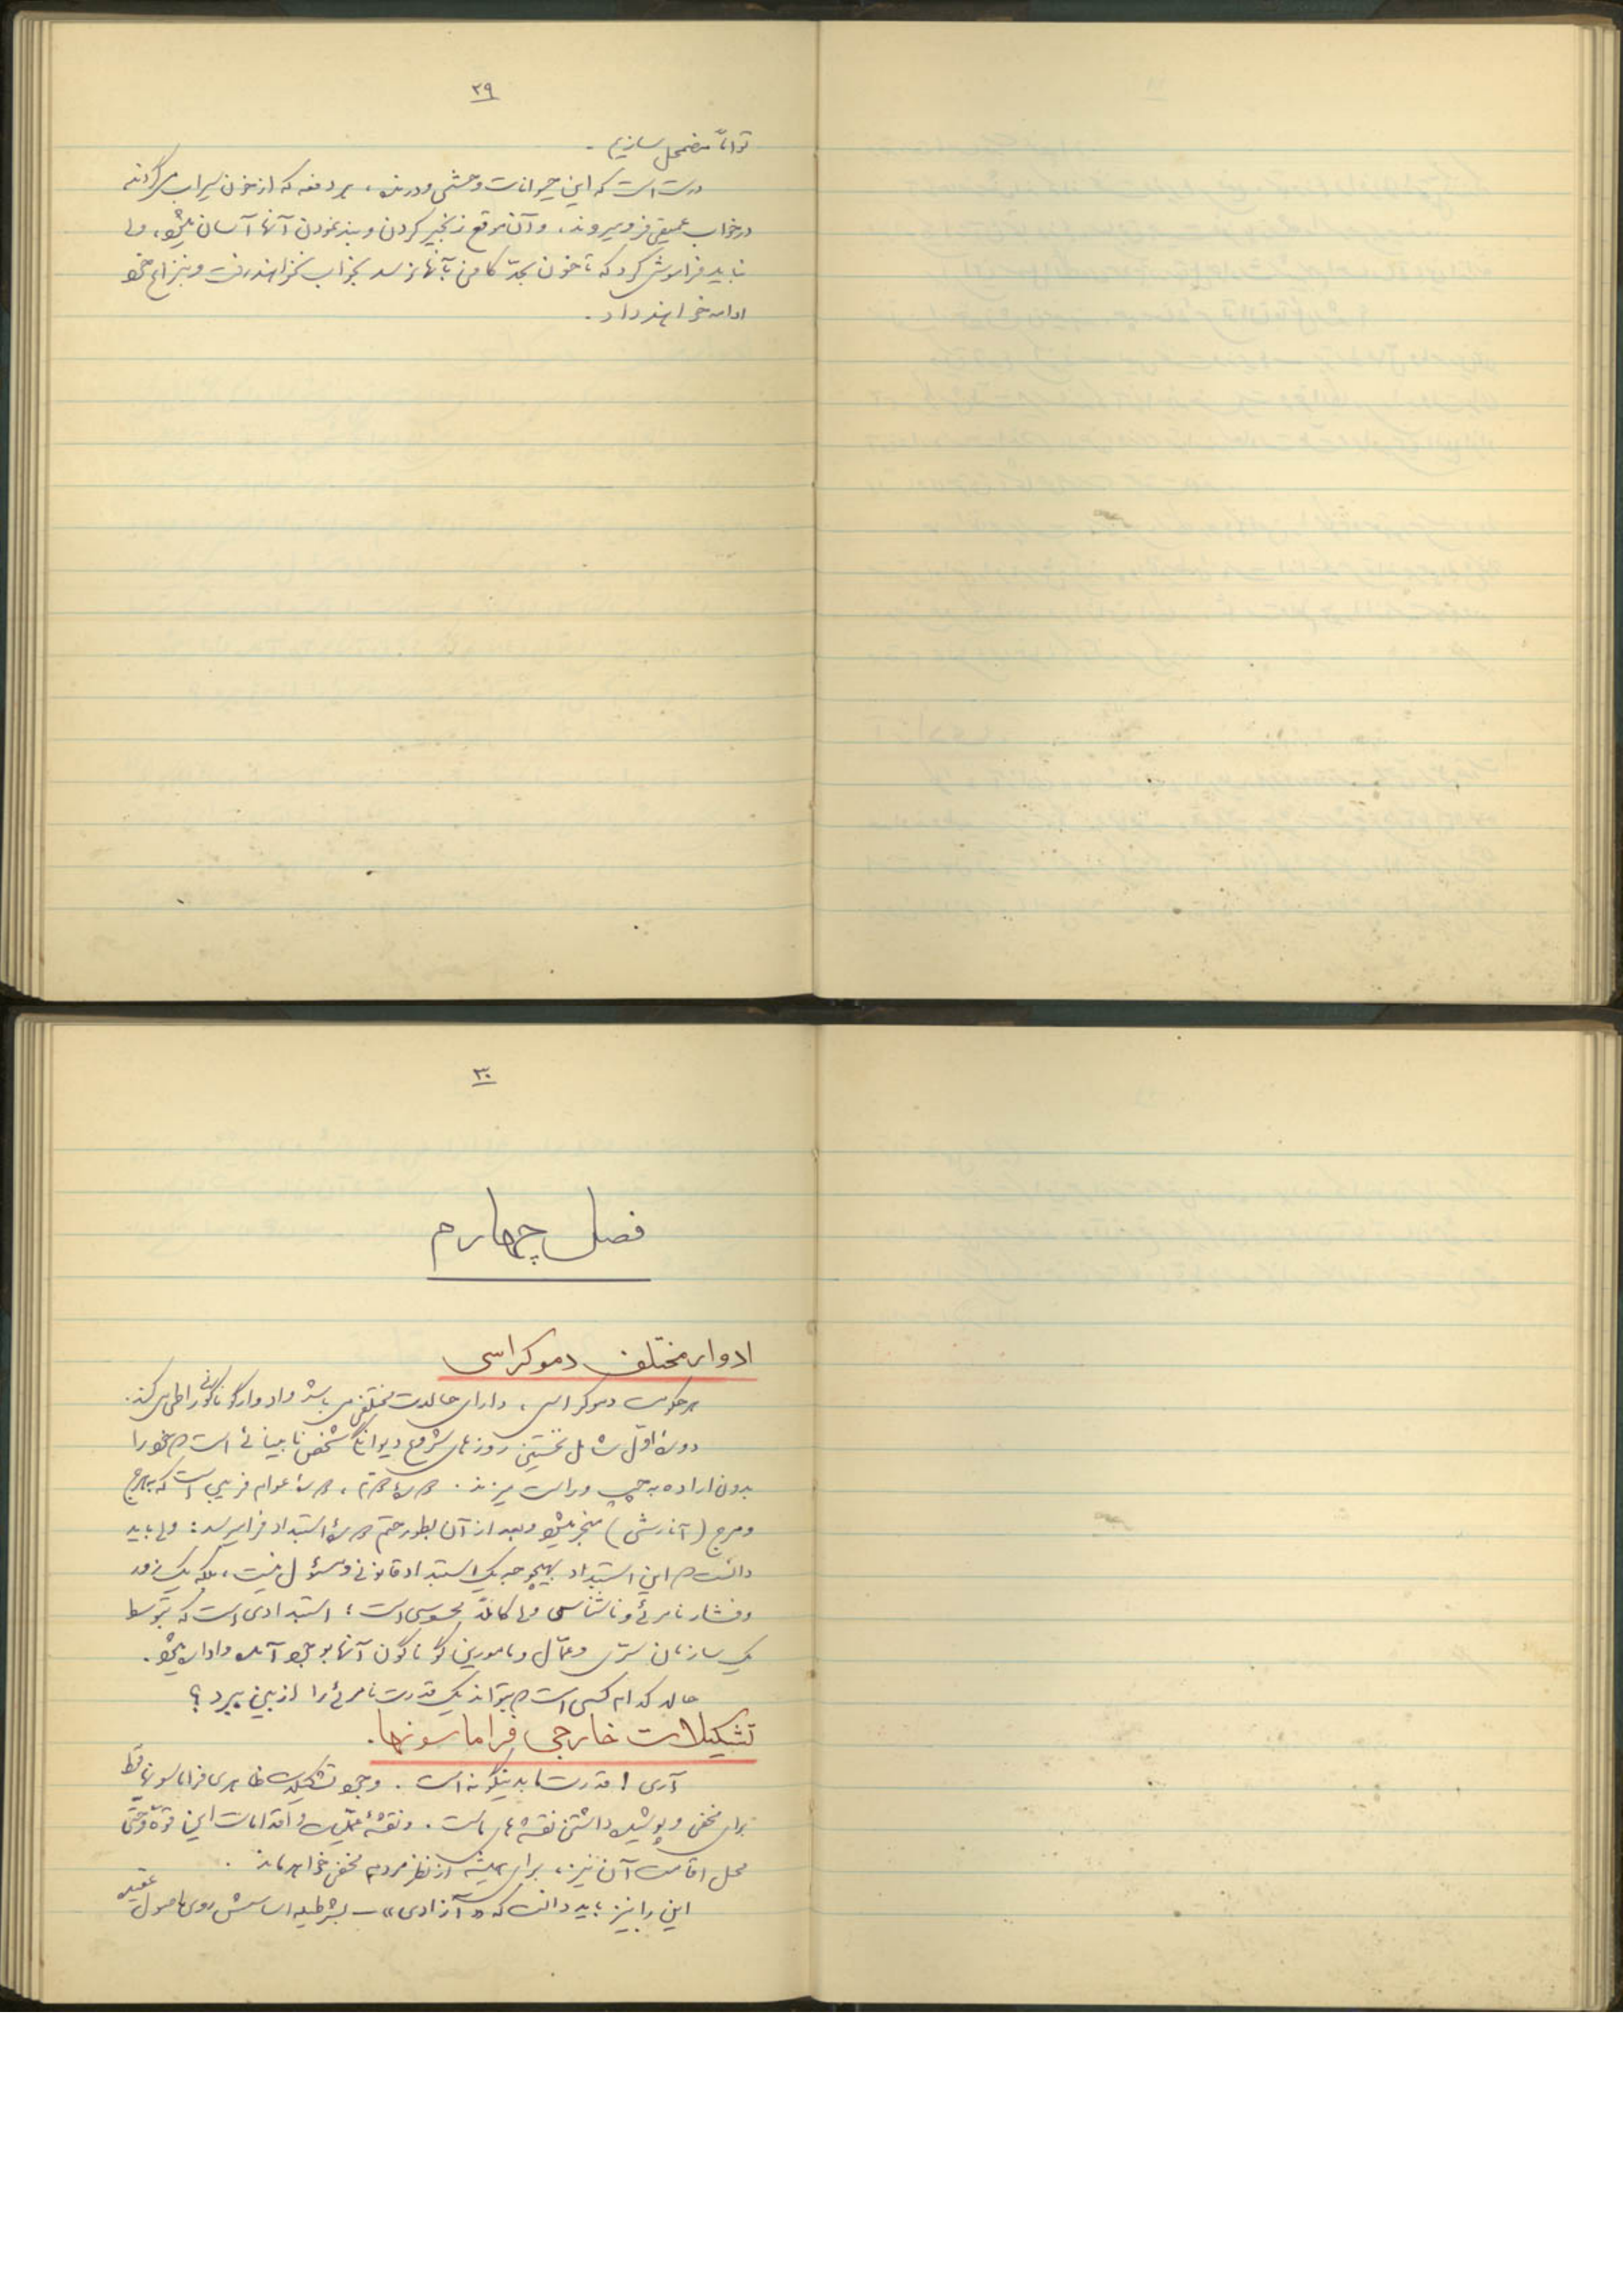 ۲۹
تواناّ مضمحل سازیم .
درست است که این حیوانات وحشی و درنده ، هر دفعه که از خون سیراب میگردند
در خواب عمیقی فرو میروند ، و آن موقع زنجیر کردن و بند نمودن آنها آسان میشود ، ولی
نباید فراموش کرد که تا خون بحدّ کافی بآنها نرسد بخواب نخواهند رفت و بنزاع خود
ادامه خواهند داد .
۳۰
فصل چهارم
ادوار مختلف دموکراسی
هر حکومت دموکراسی ، دارای حالات مختلفی میباشد و ادوار گوناگونی را طی میکند .
دورهٔ اوّل شامل نخستین روزهای شروع دیوانگی شخص نابینائی است که خود را
بدون اراده به چپ و راست میزند . دورهٔ دوّم ، دورهٔ عوام فریبی است که بهرج
و مرج (آنارشی) منجر میشود و بعد از آن بطور حتم دورهٔ استبداد فرا میرسد : ولی باید
دانست که این استبداد بهیچوجه یک استبداد قانونی و مسئول نیست ، بلکه یک زور
و فشار نامرئی و ناشناس ولی کاملاً محسوسی است ؛ استبدادی است که بتوسط
یک سازمان سرّی و عمّال و مامورین گوناگون آنها بوجود آمده و اداره میشود .
حالا کدام کسی است که بتواند یک قدرت نامرئی را از بین ببرد ؟
تشکیلات خارجی فراماسونها .
آری ! قدرت ما بدینگونه است . وجود تشکیلات ظاهری فراماسونها فقط
برای مخفی و پوشیده داشتن نقشه های ماست . و نقشهٔ عملیات و اقدامات این قوّه و حتّی
محل اقامت آن نیز ، برای همیشه از نظر مردم مخفی خواهد ماند .
این را نیز باید دانست که «آزادی» – بشرطیکه اساسش روی اصول عقیده